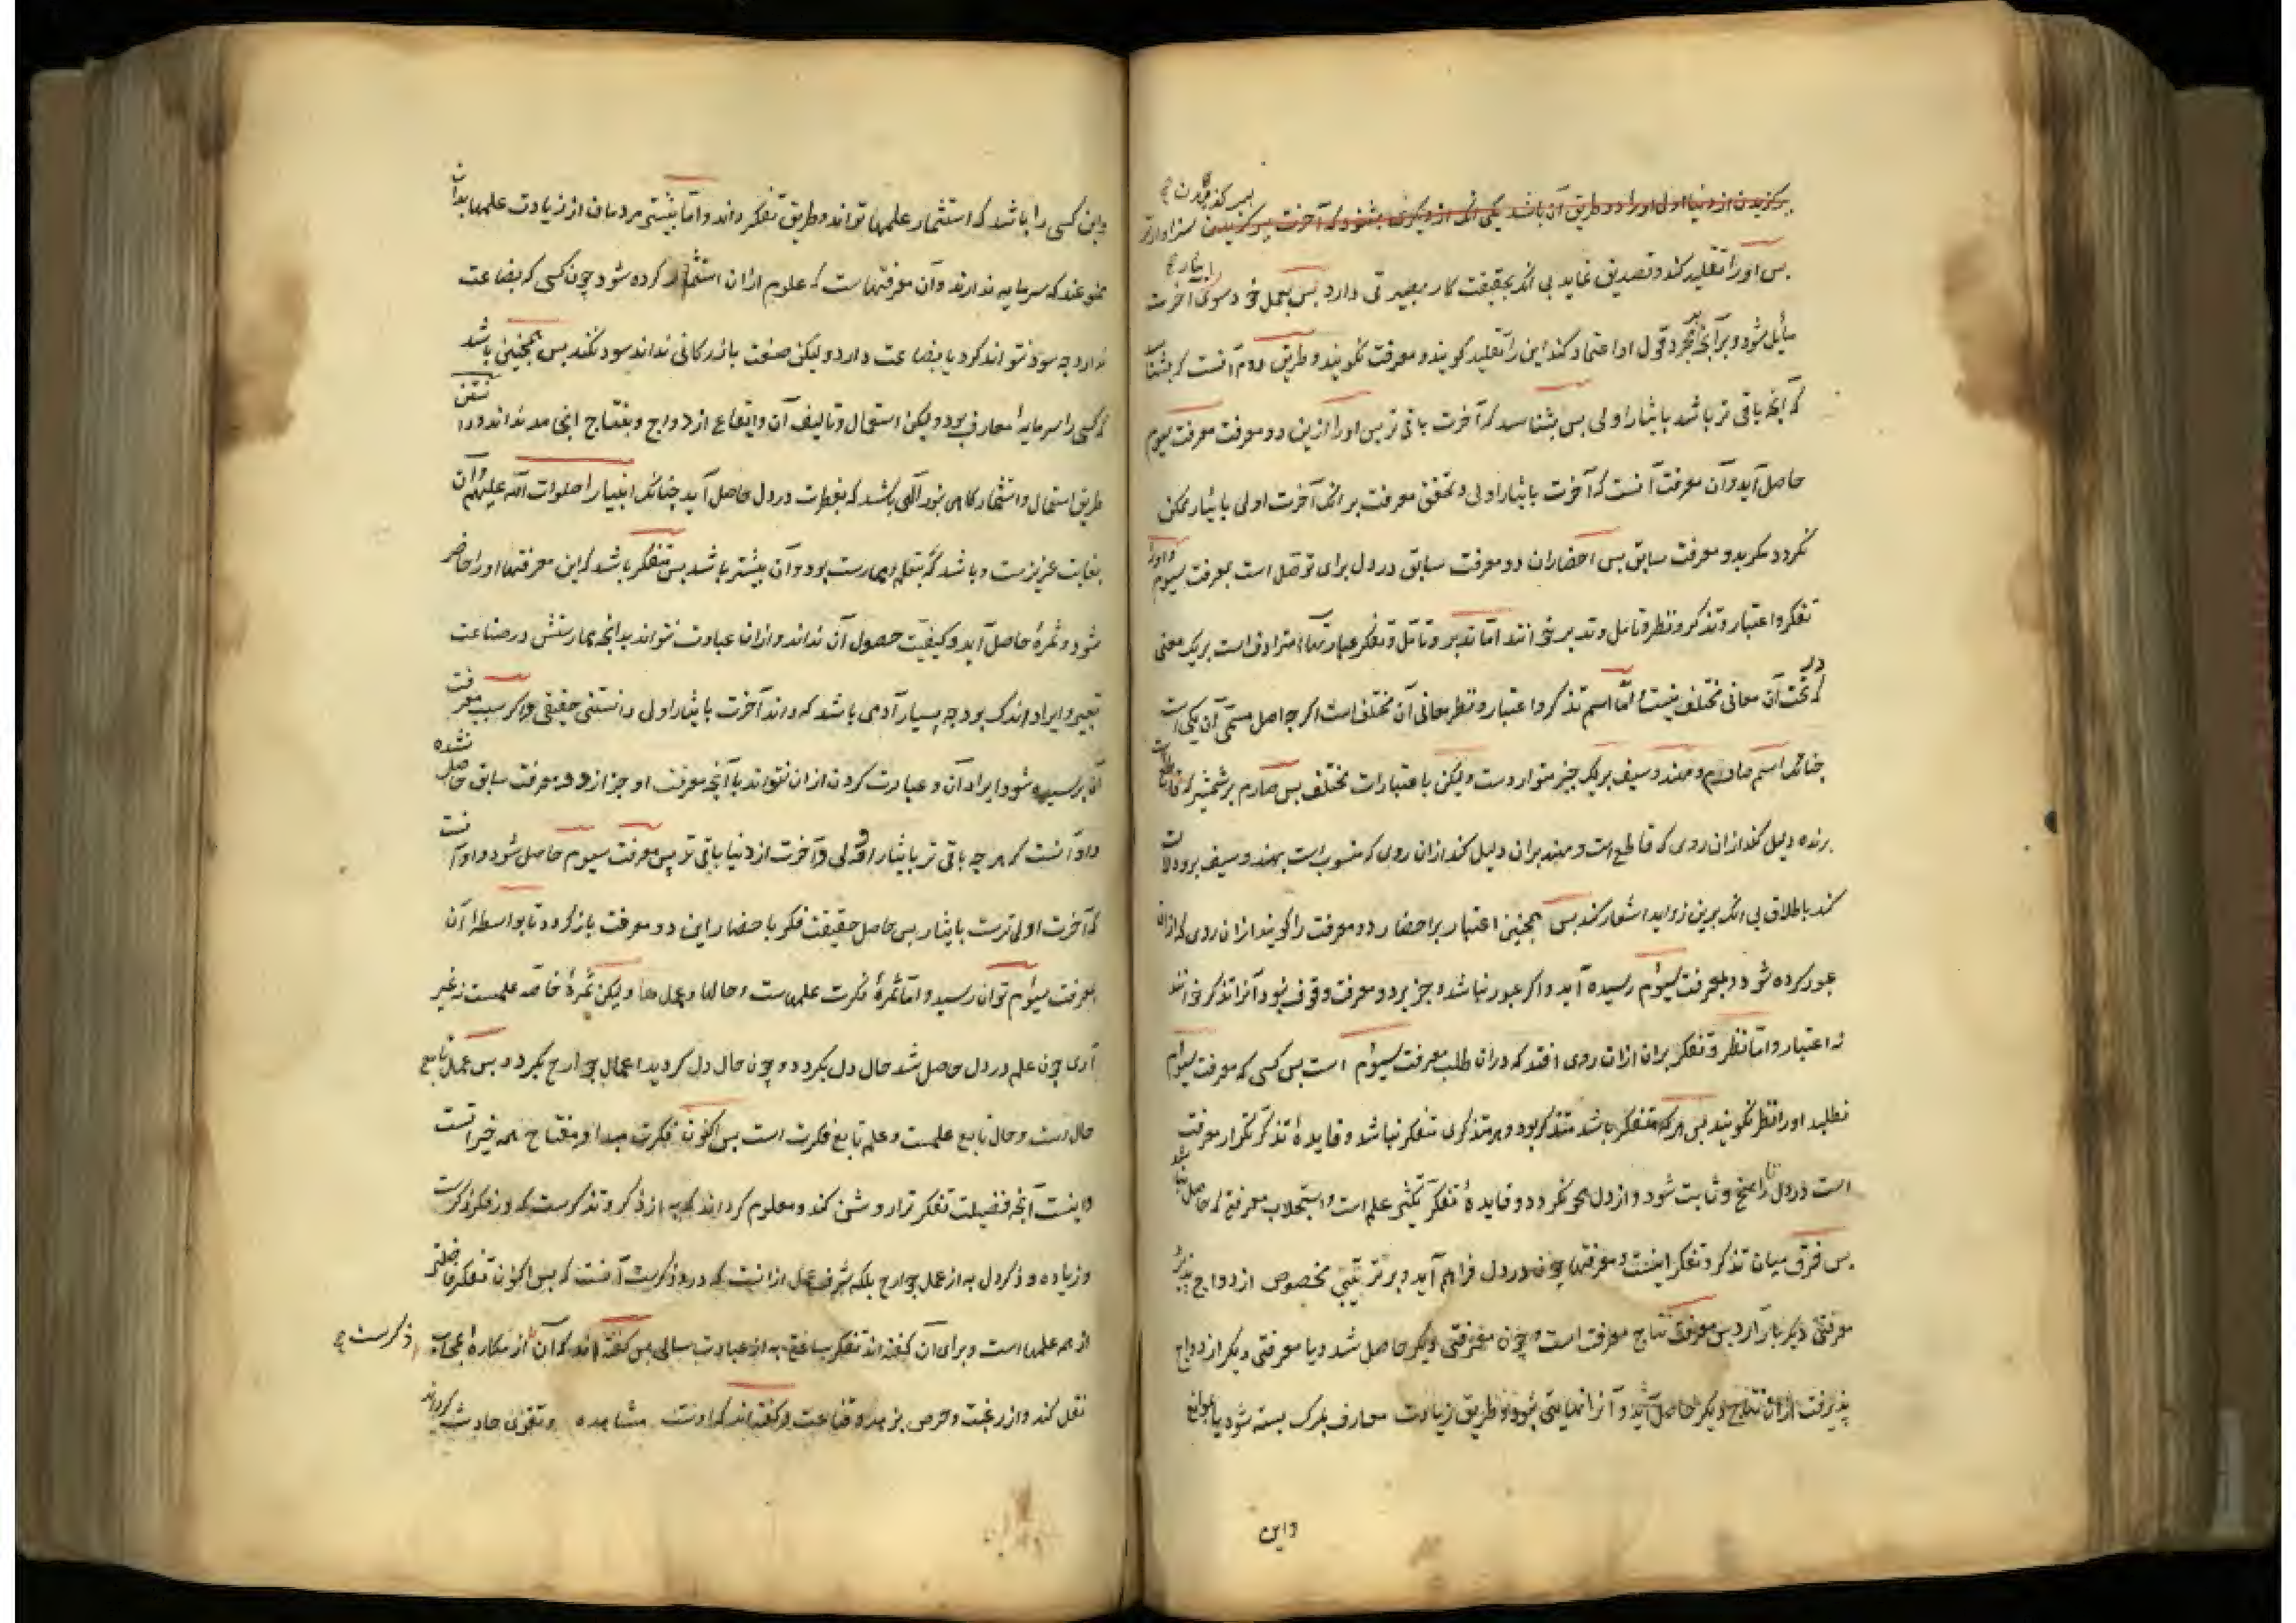 برگزیدن از دنیا اولی او را دو طریق آن باشد یکی آنک از دیگری بشنود که آخرت سزاوارتر
پس او را تقلید کند و تصدیق نماید بی آنک بحقیقت کار بصیرتی دارد پس بعمل خود سوی آخرت
مایل شود و بر آن بمجرد قول او اعتماد کند این را تقلید گویند و معرفت نگویند و طریق دوم آنست که بشناسد
که آنچه باقی تر باشد بایثار اولی پس بشناسد که آخرت باقی تر پس او را ازین دو معرفت معرفت سیوم
حاصل آید و آن معرفت آنست که آخرت بایثار اولی و تحقق معرفت بر آنک آخرت اولی بایثار ممکن
نگردد مگر بدو معرفت سابق پس احضاران دو معرفت سابق در دل برای توصل است بمعرفت سیوم و او را
تفکر و اعتبار و تذکر و نظر و تامل و تدبر خوانند اما تدبر و تامل و تفکر عبارتها مترادف است بر یک معنی
که در تحت آن معانی مختلف نیست اما اسم تذکر و اعتبار و نظر معانی آن مختلف است اگر چه اصل مسمی آن یکی است
چنانک اسم صارم و مهند و سیف بر یک چیز متواردست ولیکن باعتبارات مختلف پس صارم بر شمشیر که قاطع است
برنده دلیل کند ازان روی که قاطع است و مهند بران دلیل کند ازان روی که منسوب است بهند و سیف برو دلالت
کند باطلاق بی آنک برین زواید اشعار کند پس همچنین اعتبار بر احضار دو معرفت را گویند ازان روی که ازان
عبور کرده شود و بمعرفت سیوم رسیده آید و اگر عبور نباشد و جز بر دو معرفت وقوف نبود آنرا تذکر خوانند
نه اعتبار و اما نظر و تفکر بران ازان روی افتد که دران طلب معرفت سیوم است پس کسی که معرفت سیوم
نطلبد او را نظر نگویند پس هر که متفکر باشد متذکر بود و هر متذکری متفکر نباشد و فایدهٔ تذکر تکرار معرفت
است در دل تا راسخ و ثابت شود و از دل محو نگردد و فایدهٔ تفکر تکثیر علم است و استجلاب معرفتی که حاصل نباشد
پس فرق میان تذکر و تفکر اینست و معرفتها چون در دل فراهم آید و بر ترتیبی مخصوص ازدواج پذیرد
معرفتی دیگر بار آرد پس معرفت نتاج معرفت است و چون معرفتی دیگر حاصل شد و با معرفتی دیگر ازدواج
پذیرفت ازان نتاج دیگر حاصل آید و آنرا نهایتی نبود و طریق زیادت معارف بمرگ بسته شود یا بموانع
واین
واین کسی را باشد که استثمار علمها تواند و طریق تفکر داند و اما بیشتر مردمان از زیادت علمها بدان
ممنوعند که سرمایه ندارند و آن معرفتهاست که علوم ازان استثمار کرده شود چون کسی که بضاعت
ندارد چه سود نتواند کرد یا بضاعت دارد ولیکن صنعت بازرگانی نداند سود نکند پس همچنین باشد
که کسی را سرمایهٔ معارف بود ولیکن استعمال و تالیف آن و ایقاع ازدواج نداند و دانستن
طریق استعمال و استثمار گاهی بنور الهی باشد که بفطرت در دل حاصل آید چنانک انبیا را صلوات الله علیهم و آن
بغایت عزیزست و باشد که بتعلم و ممارست بود و آن بیشتر باشد پس متفکر باشد که این معرفتها او را حاضر
شود و ثمرهٔ حاصل آید و کیفیت حصول آن نداند و ازان عبارت نتواند بدانچه ممارستش در صناعت
تعبیر و ایراد اندک بود چه بسیار آدمی باشد که داند آخرت بایثار اولی دانستنی حقیقی و اگر سبب معرفت
آن پرسیده شود ایراد آن و عبارت کردن ازان نتواند با آنچه معرفت او جز از دو معرفت سابق حاصل نشده
و او آنست که هرچه باقی تر بایثار اولی و آخرت از دنیا باقی تر پس معرفت سیوم حاصل شود و او آنست
که آخرت اولی ترست بایثار پس حاصل حقیقت فکر با حضار این دو معرفت بازگردد تا بواسطهٔ آن
بمعرفت سیوم توان رسید و اما ثمرهٔ فکرت علمهاست و حالها و عملها ولیکن ثمرهٔ خاصه علمست نه غیر
آری چون علم در دل حاصل شد حال دل بگردد و چون حال دل گردید اعمال جوارح بگردد پس عمل تابع
حال است و حال تابع علمست و علم تابع فکرت است پس اکنون فکرت مبدا و مفتاح همه خیراتست
واینست آنچه فضیلت تفکر ترا روشن کند و معلوم گرداند که به از ذکر و تذکرست که در فکر ذکرست
و زیاده و ذکر دل به از عمل جوارح بلکه شرف عمل ازانست که درو ذکرست پس اکنون تفکر فاضلتر
از همه عملهاست و برای آن گفته اند تفکر ساعتی به از عبادت سالی پس گفته اند که آن از مکاره بمحاب
ذکرست
نقل کند و از رغبت و حرص بزهد و قناعت و گفته اند که اوست مشاهده و تقوی حادث گرداند